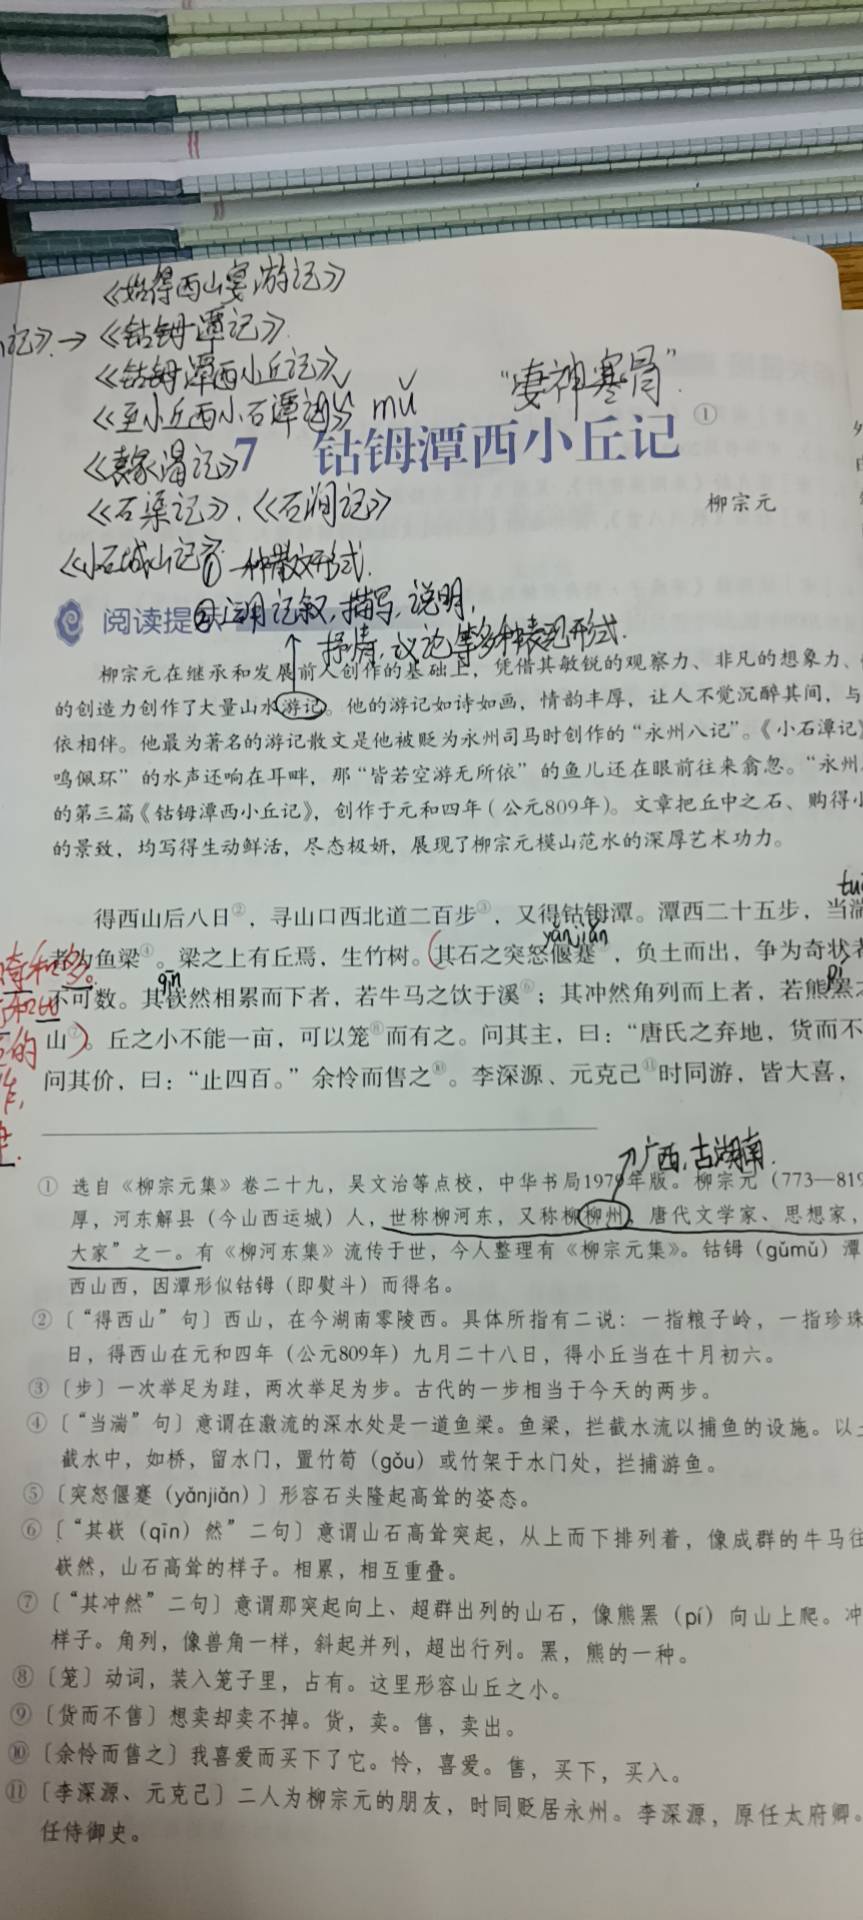 《始得西山宴游记》
记》→《钴鉧潭记》
《钴鉧潭西小丘记》
《至小丘西小石潭记》
mǔ
“凄神寒骨”
7 钴鉧潭西小丘记①
《袁家渴记》
柳宗元
《石渠记》、《石涧记》
《小石城山记》
①一种散文形式.
阅读提示
②运用记叙、描写、说明、
抒情、议论等多种表现形式.
柳宗元在继承和发展前人创作的基础上，凭借其敏锐的观察力、非凡的想象力、
的创造力创作了大量山水游记。他的游记如诗如画，情韵丰厚，让人不觉沉醉其间，与
依相伴。他最为著名的游记散文是他被贬为永州司马时创作的“永州八记”。《小石潭记》
鸣佩环”的水声还响在耳畔，那“皆若空游无所依”的鱼儿还在眼前往来翕忽。“永州
的第三篇《钴鉧潭西小丘记》，创作于元和四年（公元809年）。文章把丘中之石、购得小
的景致，均写得生动鲜活，尽态极妍，展现了柳宗元模山范水的深厚艺术功力。
得西山后八日②，寻山口西北道二百步③，又得钴鉧潭。潭西二十五步，当湍
yǎnjiǎn
者为鱼梁④。梁之上有丘焉，生竹树。其石之突怒偃蹇，负土而出，争为奇状者
qīn
pí
不可数。其嵚然相累而下者，若牛马之饮于溪⑥；其冲然角列而上者，若熊罴之
山⑦。丘之小不能一亩，可以笼⑧而有之。问其主，曰：“唐氏之弃地，货而不
问其价，曰：“止四百。”余怜而售之⑩。李深源、元克己⑪时同游，皆大喜，
广西、古湖南.
① 选自《柳宗元集》卷二十九，吴文治等点校，中华书局1979年版。柳宗元（773—819
厚，河东解县（今山西运城）人，世称柳河东，又称柳柳州，唐代文学家、思想家，
大家”之一。有《柳河东集》流传于世，今人整理有《柳宗元集》。钴鉧（gǔmǔ）潭
西山西，因潭形似钴鉧（即熨斗）而得名。
②〔“得西山”句〕西山，在今湖南零陵西。具体所指有二说：一指粮子岭，一指珍珠
日，得西山在元和四年（公元809年）九月二十八日，得小丘当在十月初六。
③〔步〕一次举足为跬，两次举足为步。古代的一步相当于今天的两步。
④〔“当湍”句〕意谓在激流的深水处是一道鱼梁。鱼梁，拦截水流以捕鱼的设施。以
截水中，如桥，留水门，置竹笱（gǒu）或竹架于水门处，拦捕游鱼。
⑤〔突怒偃蹇（yǎnjiǎn）〕形容石头隆起高耸的姿态。
⑥〔“其嵚（qīn）然”二句〕意谓山石高耸突起，从上而下排列着，像成群的牛马往
嵚然，山石高耸的样子。相累，相互重叠。
⑦〔“其冲然”二句〕意谓那突起向上、超群出列的山石，像熊罴（pí）向山上爬。冲
样子。角列，像兽角一样，斜起并列，超出行列。罴，熊的一种。
⑧〔笼〕动词，装入笼子里，占有。这里形容山丘之小。
⑨〔货而不售〕想卖却卖不掉。货，卖。售，卖出。
⑩〔余怜而售之〕我喜爱而买下了它。怜，喜爱。售，买下，买入。
⑪〔李深源、元克己〕二人为柳宗元的朋友，时同贬居永州。李深源，原任太府卿。
任侍御史。